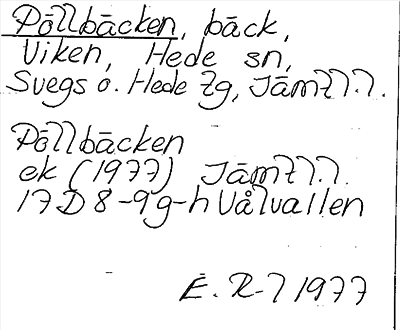 Pöllbäcken, bäck,
Viken, Hede sn,
Svegs o. Hede tg, Jämtl. l.
Pöllbäcken
ek (1977) Jämtl. l.
17D 8-9g-h Vålvallen
E. R-l 1977